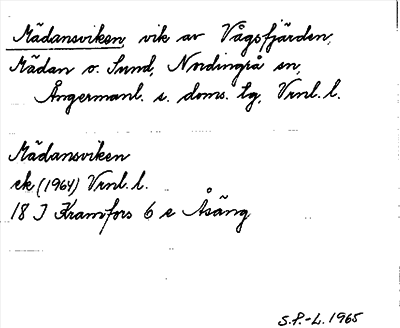 Mädansviken, vik av Vågsfjärden,
Mädan o. Sund, Nordingrå sn,
Ångermanl. s. doms. lg, Vrnl. l.
Mädansviken
ek (1964) Vrnl. l.
18 I Kramfors 6 e Åsäng
S.P.-L. 1965